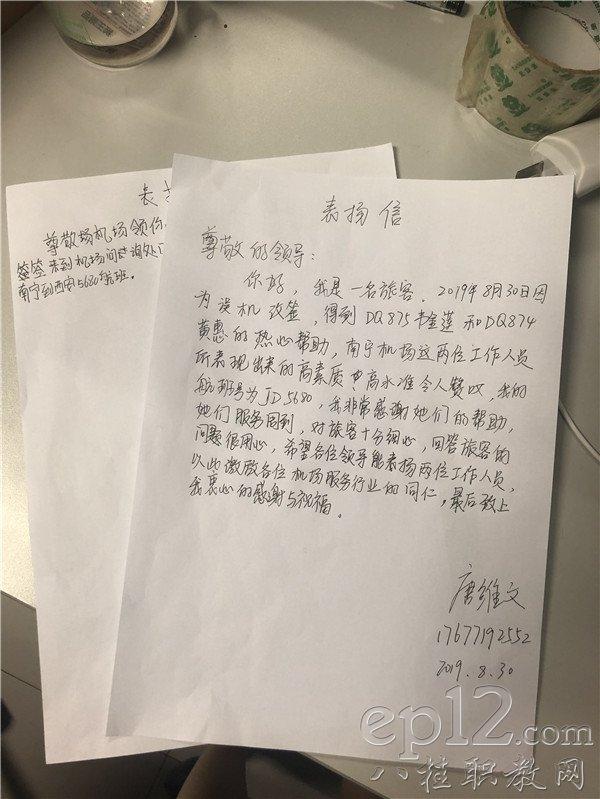 表扬信
尊敬的领导：
你好，我是一名旅客，2019年8月30日因
为误机改签，得到DQ875韦金莲和DQ874
黄惠的热心帮助，南宁机场这两位工作人员
所表现出来的高素质高水准令人赞叹，我的
航班号为JD5680，我非常感谢她们的帮助，
她们服务周到，对旅客十分细心，回答旅客的
问题很用心，希望各位领导能表扬两位工作人员，
以此激励各位机场服务行业的同仁，最后致上
我衷心的感谢与祝福。
唐维文
17677192552
2019.8.30
尊敬
机场领
来到机场问
南宁到西安5680航班。
ep12.com
八桂职教网